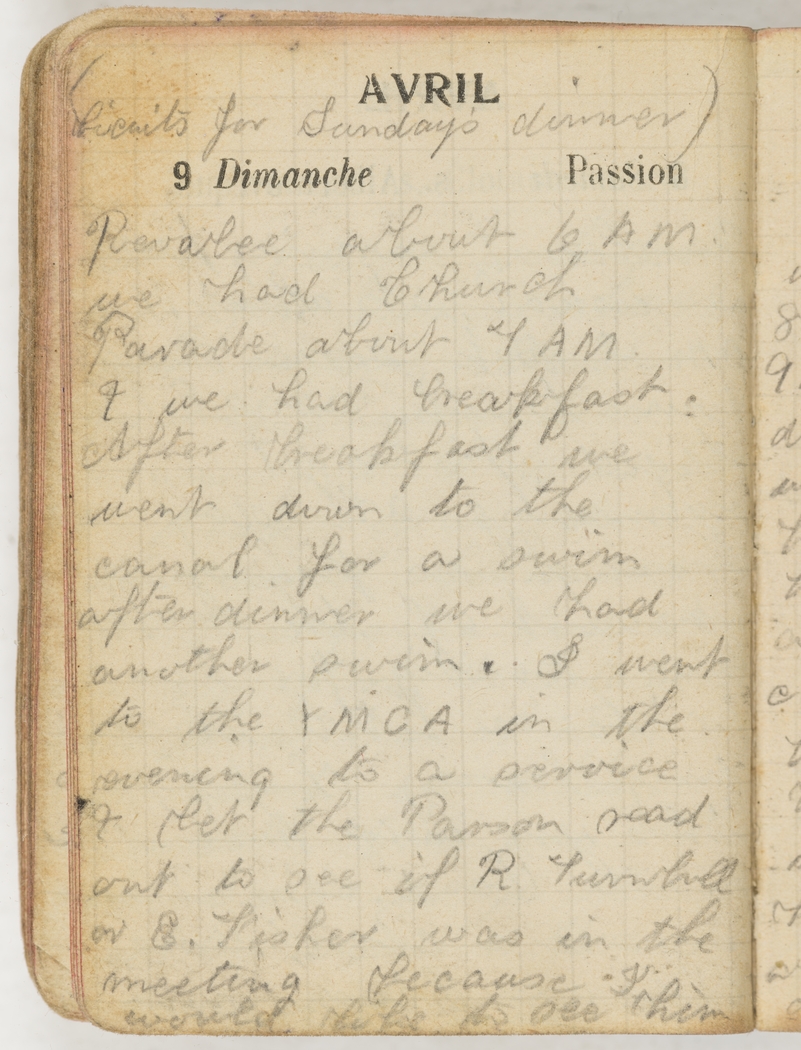 AVRIL
(bicuits for Sunday's dinner)
9 Dimanche Passion
Revalee about 6 AM.
we had Church
Parade about 7 AM.
& we had breakfast.
After breakfast we
went down to the
canal for a swim
after dinner we had
another swim. I went
to the YMCA in the
evening to a service
& let the Parson read
out to see if R. Turnbull
or E. Fisher was in the
meeting because I
would like to see him